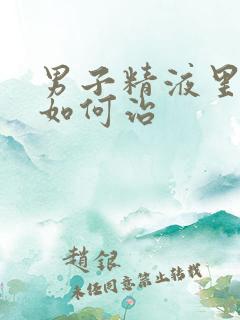 男子精液里
如何治
趙銀
未经同意禁止转载